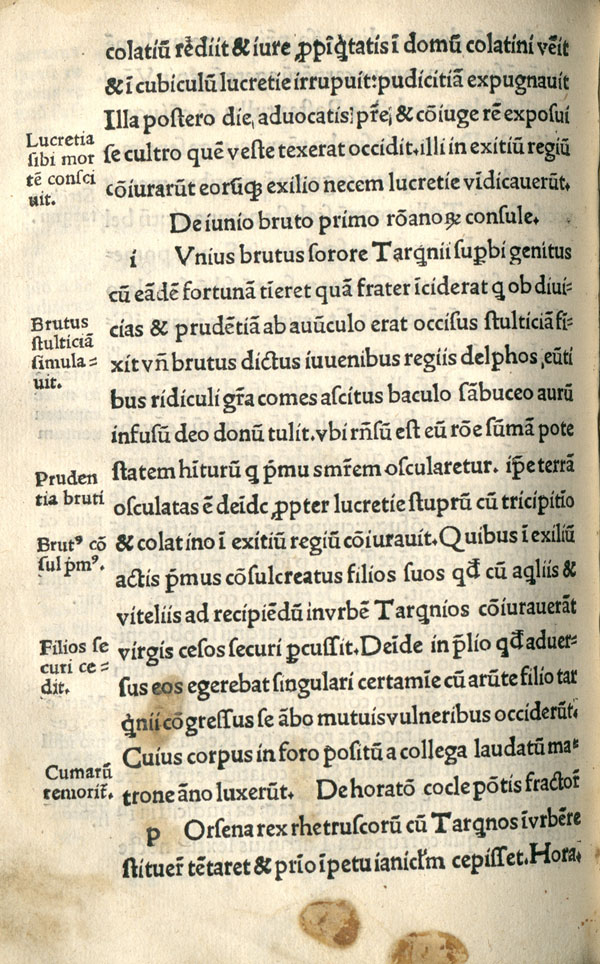 colatiū rediit & iure ꝓpīq̇tatis ī domū colatini vēit
& ī cubiculū lucretie irrupuit: pudicitiā expugnauit
Illa postero die, aduocatis pr̄e, & cōiuge rē exposui
Lucretia
sibi mor
tē consci
uit.
se cultro quē veste texerat occidit. illi in exitiū regiū
cōiurarūt eorūq̄ exilio necem lucretie vīdicauerūt.
De iunio bruto primo rōanoꝝ consule.
i Vnius brutus sorore Tarqnii supbi genitus
cū eādē fortunā tīeret quā frater īciderat q ob diui/
Brutus
stulticiā
simula=
uit.
cias & prudētiā ab auūculo erat occisus stulticiā fi-
xit vn̄ brutus dictus iuuenibus regiis delphos, eūti
bus ridiculi gr̄a comes ascitus baculo sābuceo aurū
infusū deo donū tulit. vbi rn̄sū est eū rōe sūmā pote
Pruden
tia bruti
statem hīturū q pͥmu smr̄em oscularetur. ip̄e terrā
osculatas ē deīdc ꝓpter lucretie stuprū cū tricipitīo
Brutꝰ cō
sul pͥmꝰ.
& colatino ī exitiū regiū cōiurauit. Quibus ī exiliū
actis pͥmus cōsulcreatus filios suos qđ cū aqliis &
viteliis ad recipiēdū invrbē Tarqnios cōiurauerāt
Filios se
curi ce=
dit.
virgis cesos securi ꝑcussit. Deīde in p̄lio qđ aduer-
sus eos egerebat singulari certamīe cū arūte filio tar
q̇nii cōgressus se ābo mutuisvulneribus occiderūt.
Cuius corpus in foro positū a collega laudatū ma=
Cumarū
remorir̄.
trone āno luxerūt. De horatō cocle pōtis fractor̄
p Orsena rex rhetruscorū cū Tarqnos īvrbēre
stituer̄ tētaret & prīo īpetu ianicl̄m cepisset. Hora.